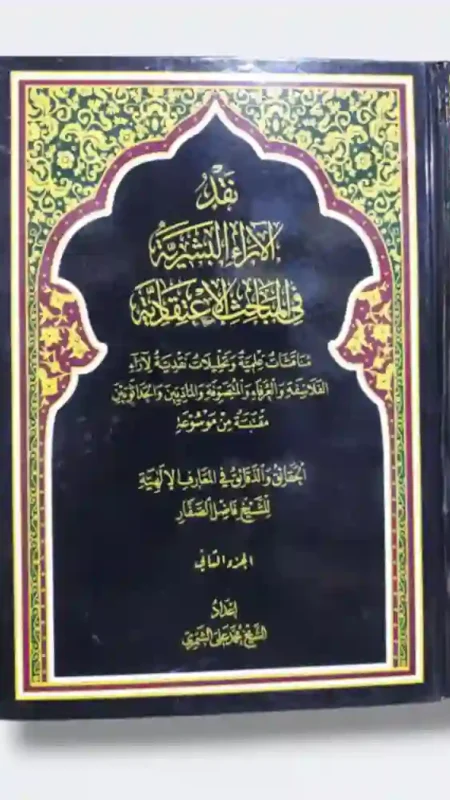 نقد
الآراء البشرية
في المباحث الاعتقادية
مناقشات علمية وتحليلات نقدية لآراء
الفلاسفة والعرفاء والمتصوفة والماديين والحداثويين
مقتبسة من موسوعة
الحقائق والدقائق في المعارف الإلهية
للشيخ فاضل الصفار
الجزء الثاني
إعداد
الشيخ محمد علي الشمري